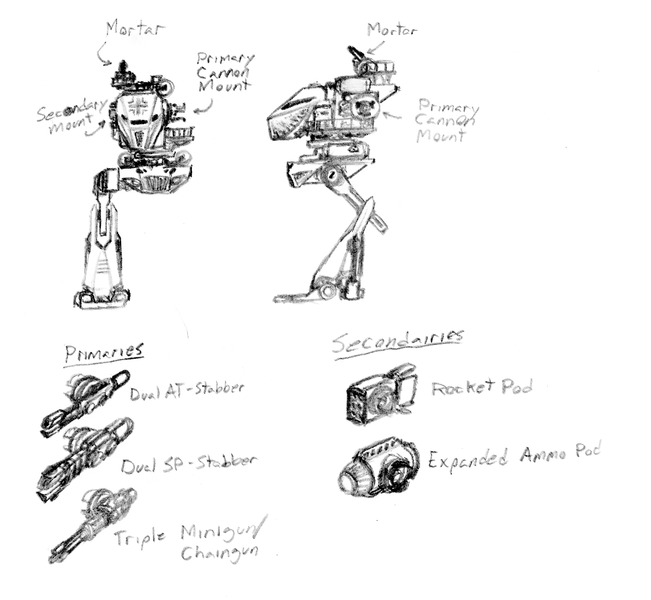 Mortar
Primary
Cannon
Mount
Secondary
Mount
Mortor
Primary
Cannon
Mount
Primaries
Dual AT-Stabber
Dual SP-Stabber
Triple Minigun/
Chaingun
Secondairies
Rocket Pod
Expanded Ammo Pod